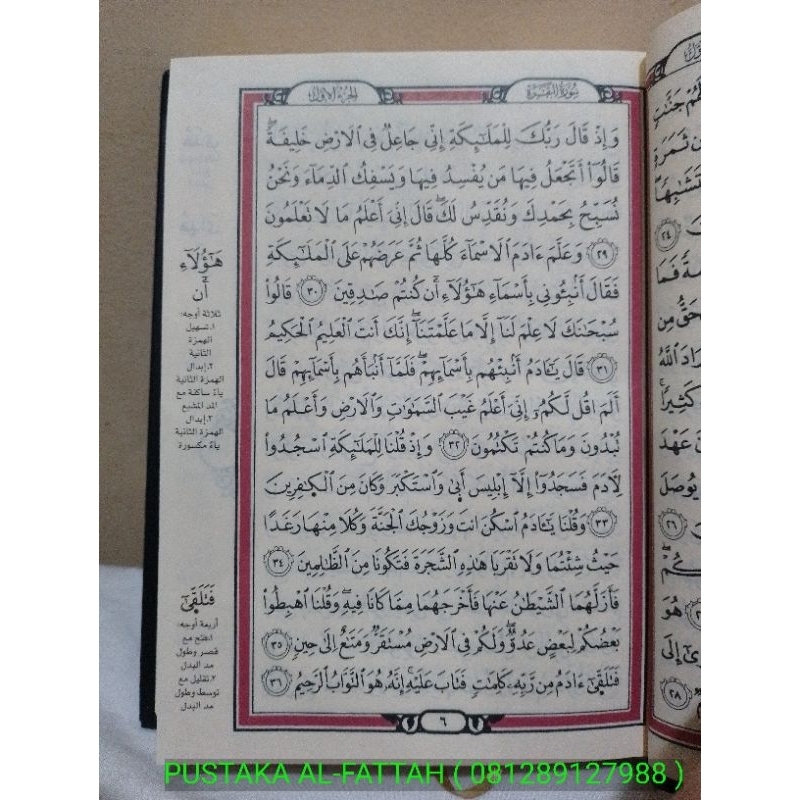 سورة البقرة
الجزء الأول
وَإِذْ قَالَ رَبُّكَ لِلْمَلَٰٓئِكَةِ إِنِّي جَاعِلٌ فِي اِ۬لَارْضِ خَلِيفَةٗۖ
قَالُوٓاْ أَتَجْعَلُ فِيهَا مَنْ يُّفْسِدُ فِيهَا وَيَسْفِكُ اُ۬لدِّمَآءَ وَنَحْنُ
نُسَبِّحُ بِحَمْدِكَ وَنُقَدِّسُ لَكَۖ قَالَ إِنِّيَ أَعْلَمُ مَا لَا تَعْلَمُونَ
٢٩ وَعَلَّمَ ءَادَمَ اَ۬لَاسْمَآءَ كُلَّهَا ثُمَّ عَرَضَهُمْ عَلَى اَ۬لْمَلَٰٓئِكَةِ
فَقَالَ أَنۢبِـُٔونِي بِأَسْمَآءِ هَٰٓؤُلَآءِ ا۪ن كُنتُمْ صَٰدِقِينَ ٣٠ قَالُواْ
سُبْحَٰنَكَ لَا عِلْمَ لَنَآ إِلَّا مَا عَلَّمْتَنَآۖ إِنَّكَ أَنتَ اَ۬لْعَلِيمُ اُ۬لْحَكِيمُ
٣١ قَالَ يَٰٓـَٔادَمُ أَنۢبِئْهُم بِأَسْمَآئِهِمْۖ فَلَمَّآ أَنۢبَأَهُم بِأَسْمَآئِهِمْ قَالَ
أَلَمَ اَقُل لَّكُمُۥٓ إِنِّيَ أَعْلَمُ غَيْبَ اَ۬لسَّمَٰوَٰتِ وَالَارْضِ وَأَعْلَمُ مَا
تُبْدُونَ وَمَا كُنتُمْ تَكْتُمُونَ ٣٢ وَإِذْ قُلْنَا لِلْمَلَٰٓئِكَةِ اِ۟سْجُدُواْ
لِأٓدَمَ فَسَجَدُوٓاْ إِلَّآ إِبْلِيسَ أَب۪يٰ وَاسْتَكْبَرَ وَكَانَ مِنَ اَ۬لْكٰ۪فِرِينَ
٣٣ وَقُلْنَا يَٰٓـَٔادَمُ اُ۟سْكُنَ اَنتَ وَزَوْجُكَ اَ۬لْجَنَّةَ وَكُلَا مِنْهَا رَغَدًا
حَيْثُ شِئْتُمَا وَلَا تَقْرَبَا هَٰذِهِ اِ۬لشَّجَرَةَ فَتَكُونَا مِنَ اَ۬لظَّٰلِمِينَ ٣٤
فَأَزَلَّهُمَا اَ۬لشَّيْطَٰنُ عَنْهَا فَأَخْرَجَهُمَا مِمَّا كَانَا فِيهِۖ وَقُلْنَا اَ۪هْبِطُواْ
بَعْضُكُمْ لِبَعْضٍ عَدُوّٞۖ وَلَكُمْ فِي اِ۬لَارْضِ مُسْتَقَرّٞ وَمَتَٰعٌ اِلَىٰ حِينٖ ٣٥
فَتَلَقّ۪يٰٓ ءَادَمُ مِن رَّبِّهِۦ كَلِمَٰتٖ فَتَابَ عَلَيْهِۖ إِنَّهُۥ هُوَ اَ۬لتَّوَّابُ اُ۬لرَّحِيمُ ٣٦
٦
هَٰٓؤُلَآءِ
ا۪ن
ثلاثة أوجه:
١. تسهيل
الهمزة
الثانية
٢. إبدال
الهمزة الثانية
ياءً ساكنة مع
المد المشبع
٣. إبدال
الهمزة الثانية
ياءً مكسورة
فَتَلَقّ۪يٰٓ
أربعة أوجه:
١. فتح مع
قصر وطول
مد البدل
٢. تقليل مع
توسط وطول
مد البدل
لَهُمْ جَنَّٰتٖ
ثَمَرَةٖ
٢٤
فَمَا
مِن
اَ۬للَّهُ
كَثِيرٗا
عَهْدَ
يُوصَلَ
٢٦
هُوَ
إِلَى
٢٨
PUSTAKA AL-FATTAH ( 081289127988 )